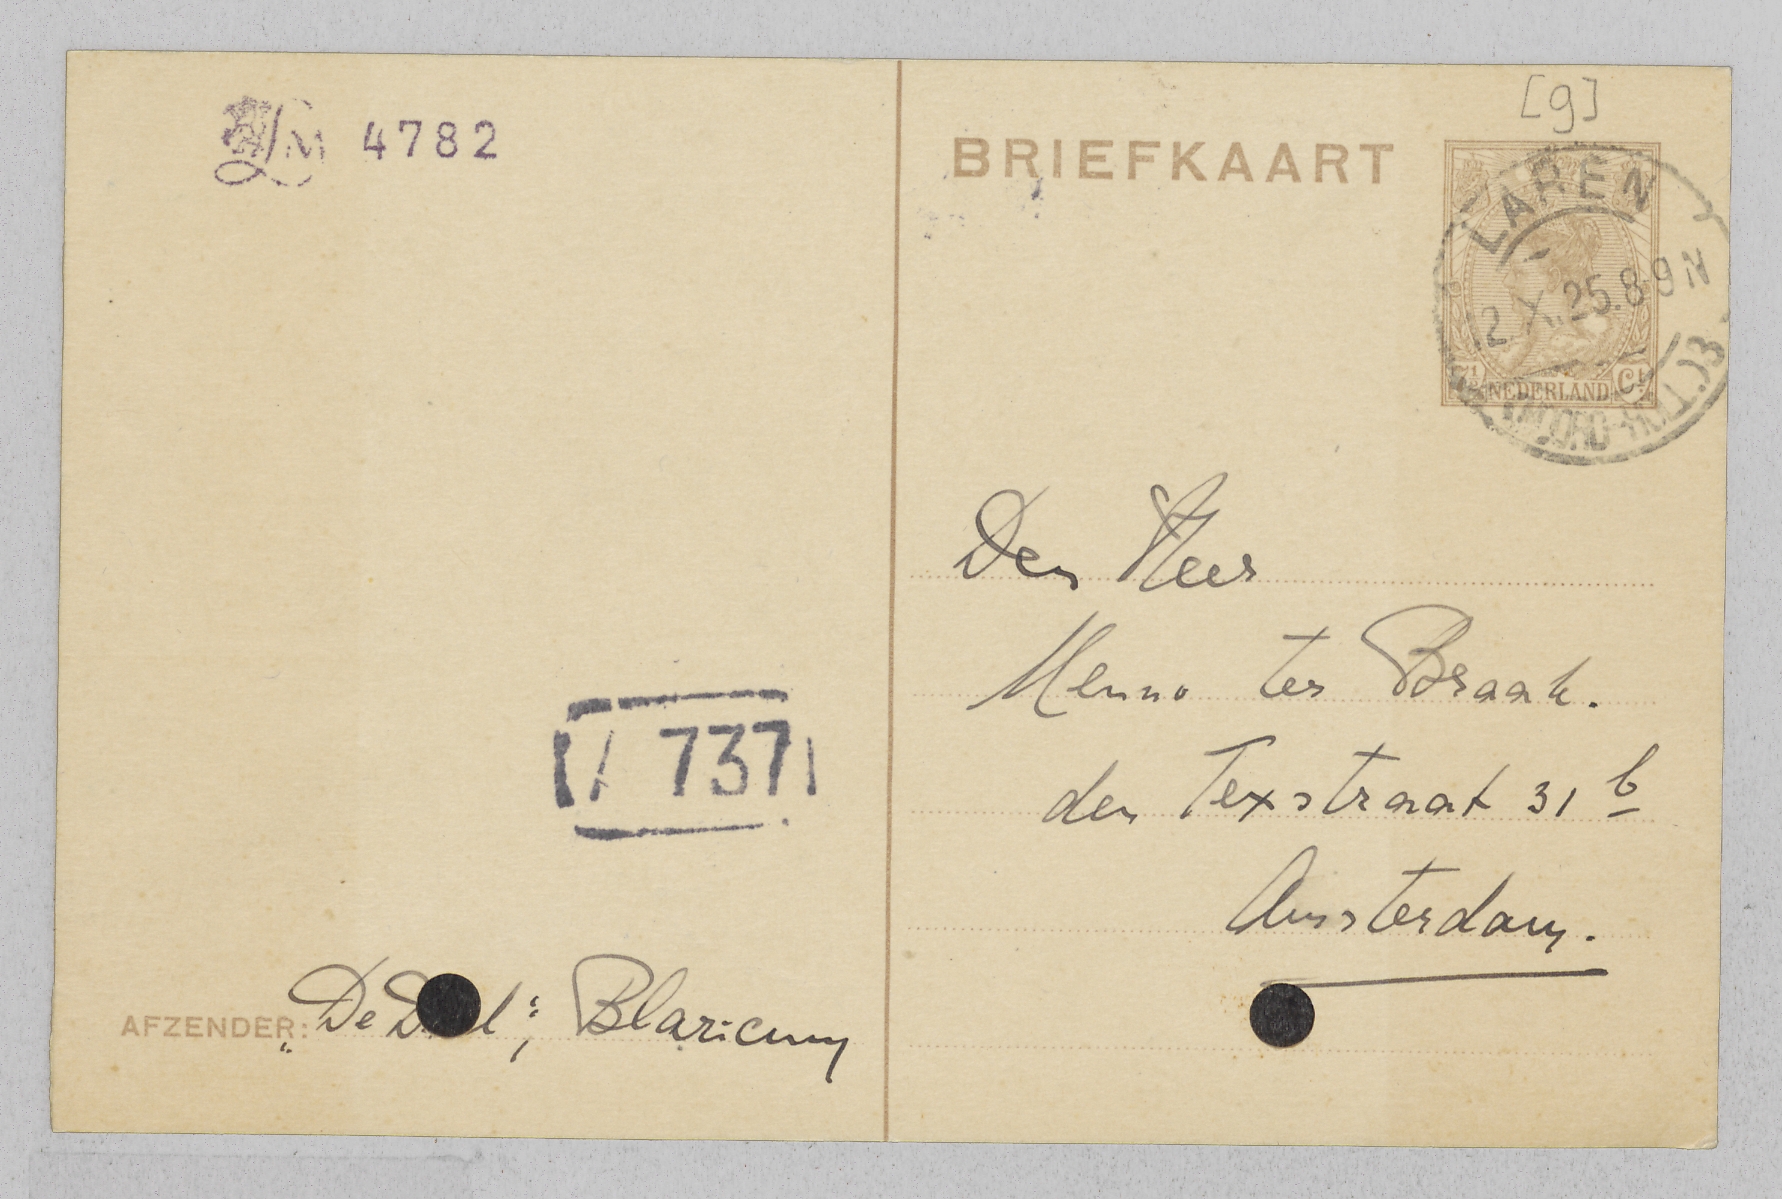 LM 4782
[g]
BRIEFKAART
LAREN
2.X.25.8-9N
(NOORD-H.)
7½ NEDERLAND Ct
Den Heer
Menno ter Braak.
den Texstraat 31 b
Amsterdam.
A 737
AFZENDER: „De D l“, Blaricum